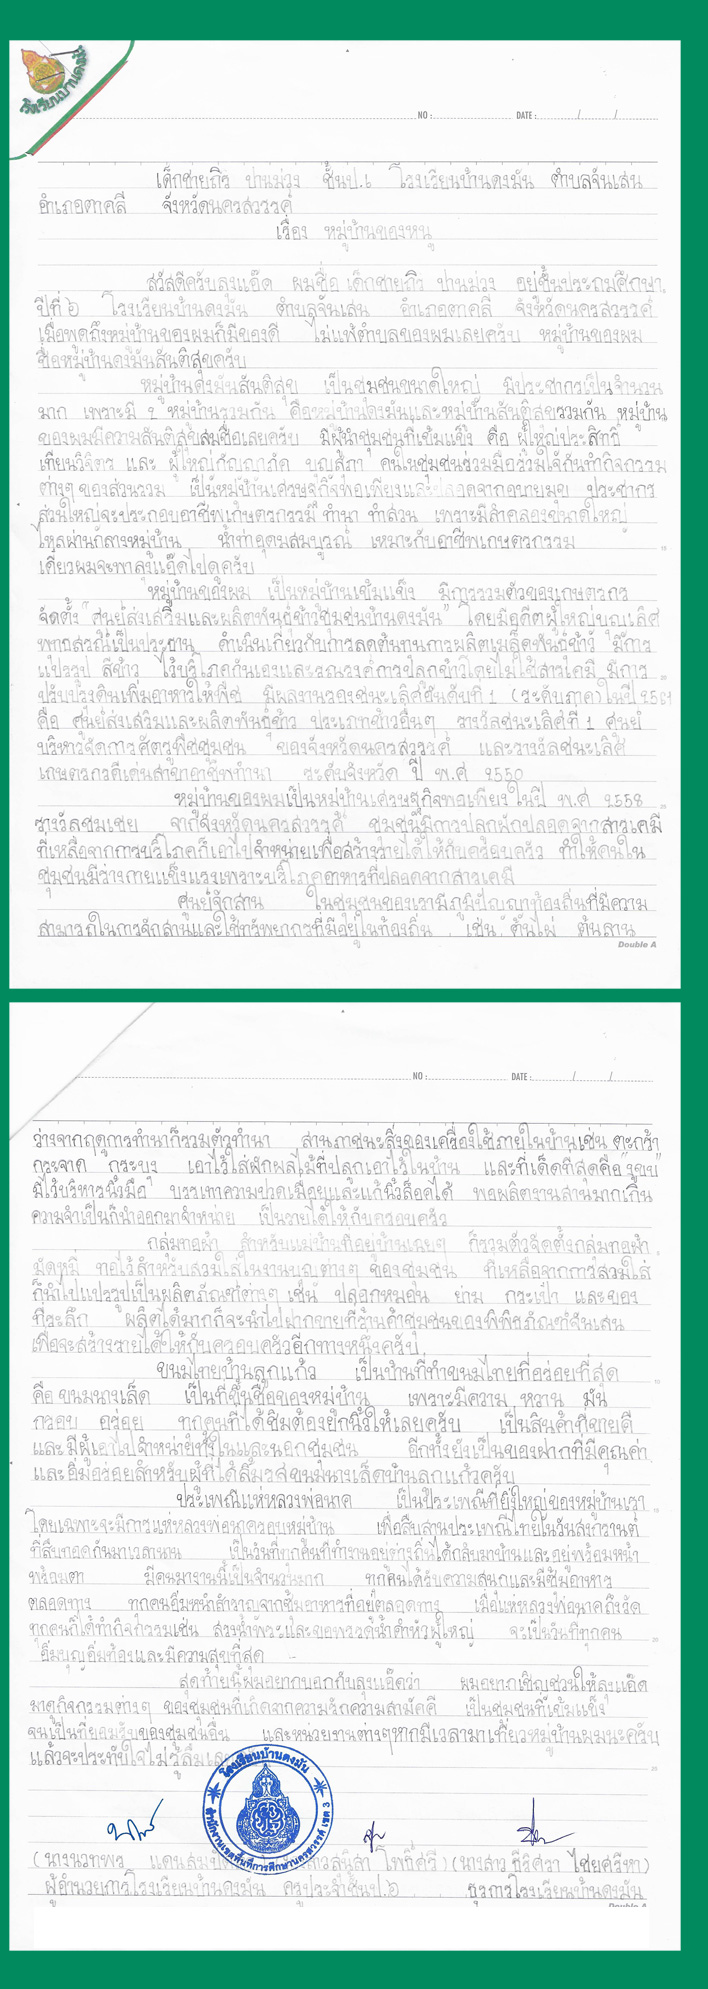 โรงเรียนบ้านดงมัน
NO : DATE : / /
เด็กชายถิร ปานม่วง ชั้นป.๖ โรงเรียนบ้านดงมัน ตำบลจันเสน
อำเภอตาคลี จังหวัดนครสวรรค์
เรื่อง หมู่บ้านของหนู
สวัสดีครับลุงแอ๊ด ผมชื่อ เด็กชายถิร ปานม่วง อยู่ชั้นประถมศึกษา
ปีที่ ๖ โรงเรียนบ้านดงมัน ตำบลจันเสน อำเภอตาคลี จังหวัดนครสวรรค์
เมื่อพูดถึงหมู่บ้านของผมก็มีของดี ไม่แพ้ตำบลของผมเลยครับ หมู่บ้านของผม
ชื่อหมู่บ้านดงมันสันติสุขครับ
หมู่บ้านดงมันสันติสุข เป็นชุมชนขนาดใหญ่ มีประชากรเป็นจำนวน
มาก เพราะมี ๒ หมู่บ้านรวมกัน คือหมู่บ้านดงมันและหมู่บ้านสันติสุขรวมกัน หมู่บ้าน
ของผมมีความสันติสุขสมชื่อเลยครับ มีผู้นำชุมชนที่เข้มแข็ง คือ ผู้ใหญ่ประสิทธิ์
เทียนวิจิตร และ ผู้ใหญ่กัญญาภัค บุญสุภา คนในชุมชนร่วมมือร่วมใจกันทำกิจกรรม
ต่างๆ ของส่วนรวม เป็นหมู่บ้านเศรษฐกิจพอเพียงและปลอดจากอบายมุข ประชากร
ส่วนใหญ่จะประกอบอาชีพเกษตรกรรม ทำนา ทำสวน เพราะมีลำคลองขนาดใหญ่
ไหลผ่านกลางหมู่บ้าน น้ำท่าอุดมสมบูรณ์ เหมาะกับอาชีพเกษตรกรรม
เดี๋ยวผมจะพาลุงแอ๊ดไปดูครับ
หมู่บ้านของผม เป็นหมู่บ้านเข้มแข็ง มีการรวมตัวของเกษตรกร
จัดตั้ง "ศูนย์ส่งเสริมและผลิตพันธุ์ข้าวชุมชนบ้านดงมัน" โดยมีอดีตผู้ใหญ่บุญเลิศ
เป็นประธาน ดำเนินเกี่ยวกับการลดต้นทุนการผลิตเมล็ดพันธุ์ข้าว มีการ
แปรรูป สีข้าว ไว้บริโภคกันเองและรณรงค์การปลูกข้าวโดยไม่ใช้สารเคมี มีการ
ปรับปรุงดินเพิ่มอาหารให้พืช มีผลงานรองชนะเลิศอันดับที่ 1 (ระดับภาค) ในปี
คือ ศูนย์ส่งเสริมและผลิตพันธุ์ข้าว ประเภทข้าวอื่นๆ รางวัลชนะเลิศที่ 1 ศูนย์
บริหารจัดการศัตรูพืชชุมชน ของจังหวัดนครสวรรค์ และรางวัลชนะเลิศ
เกษตรกรดีเด่นสาขาอาชีพทำนา ระดับจังหวัด ปี พ.ศ 2550
หมู่บ้านของผมเป็นหมู่บ้านเศรษฐกิจพอเพียงในปี พ.ศ 2558
รางวัลชมเชย จากจังหวัดนครสวรรค์ ชุมชนมีการปลูกผักปลอดจากสารเคมี
ที่เหลือจากการบริโภคก็เอาไปจำหน่ายเพื่อสร้างรายได้ให้กับครอบครัว ทำให้คนใน
ชุมชนมีร่างกายแข็งแรงเพราะบริโภคอาหารที่ปลอดจากสารเคมี
ศูนย์จักสาน ในชุมชนของเรามีภูมิปัญญาท้องถิ่นที่มีความ
สามารถในการจักสานและใช้ทรัพยากรที่มีอยู่ในท้องถิ่น เช่น ต้นไผ่ ต้นลาน
Double A
NO : DATE : / /
ว่างจากฤดูการทำนาก็รวมตัวทำนา สานภาชนะสิ่งของเครื่องใช้ภายในบ้านเช่น ตะกร้า
กระจาด กระบุง เอาไว้ใส่ผักผลไม้ที่ปลูกเอาไว้ในบ้าน และที่เด็ดที่สุดคือ
มีไว้บริหารนิ้วมือ บรรเทาความปวดเมื่อยและแก้นิ้วล็อคได้ พอผลิตงานสานมากเกิน
ความจำเป็นก็นำออกมาจำหน่าย เป็นรายได้ให้กับครอบครัว
กลุ่มทอผ้า สำหรับแม่บ้านที่อยู่บ้านเฉยๆ ก็รวมตัวจัดตั้งกลุ่มทอผ้า
มัดหมี่ ทอไว้สำหรับสวมใส่ในงานบุญต่างๆ ของชุมชน ที่เหลือจากการสวมใส่
ก็นำไปแปรรูปเป็นผลิตภัณฑ์ต่างๆ เช่น ปลอกหมอน ย่าม กระเป๋า และของ
ที่ระลึก ผลิตได้มากก็จะนำไปฝากขายที่ร้านค้าชุมชนของพิพิธภัณฑ์จันเสน
เพื่อจะสร้างรายได้ให้กับครอบครัวอีกทางหนึ่งครับ
ขนมไทยบ้านลูกแก้ว เป็นบ้านที่ทำขนมไทยที่อร่อยที่สุด
คือ ขนมนางเล็ด เป็นที่ขึ้นชื่อของหมู่บ้าน เพราะมีความ หวาน มัน
กรอบ อร่อย ทุกคนที่ได้ชิมต้องยกนิ้วให้เลยครับ เป็นสินค้าที่ขายดี
และมีผู้เอาไปจำหน่ายทั้งในและนอกชุมชน อีกทั้งยังเป็นของฝากที่มีคุณค่า
และอิ่มอร่อยสำหรับผู้ที่ได้ลิ้มรสขนมนางเล็ดบ้านลูกแก้วครับ
ประเพณีแห่หลวงพ่อนาค เป็นประเพณีที่ยิ่งใหญ่ของหมู่บ้านเรา
โดยเฉพาะจะมีการแห่หลวงพ่อนาครอบหมู่บ้าน เพื่อสืบสานประเพณีไทยในวันสงกรานต์
ที่สืบทอดกันมาเวลานาน เป็นวันที่ทุกคนที่ทำงานอยู่ต่างถิ่นได้กลับมาบ้านและอยู่พร้อมหน้า
พร้อมตา มีคนมางานนี้เป็นจำนวนมาก ทุกคนได้รับความสนุกและมีซุ้มอาหาร
ตลอดทาง ทุกคนอิ่มหนำสำราญจากซุ้มอาหารที่อยู่ตลอดทาง เมื่อแห่หลวงพ่อนาคถึงวัด
ทุกคนก็ได้ทำกิจกรรมเช่น สรงน้ำพระและขอพรรดน้ำดำหัวผู้ใหญ่ จะเป็นวันที่ทุกคน
อิ่มบุญอิ่มท้องและมีความสุขที่สุด
สุดท้ายนี้ผมอยากบอกกับลุงแอ๊ดว่า ผมอยากเชิญชวนให้ลุงแอ๊ด
มาดูกิจกรรมต่างๆ ของชุมชนที่เกิดจากความรักความสามัคคี เป็นชุมชนที่เข้มแข็ง
จนเป็นที่ยอมรับของชุมชนอื่น และหน่วยงานต่างๆหากมีเวลามาเที่ยวหมู่บ้านผมนะครับ
แล้วจะประทับใจไม่รู้ลืมเลย
โรงเรียนบ้านดงมัน
สำนักงานเขตพื้นที่การศึกษานครสวรรค์ เขต 3
(นางนวพพร แคนสมปัด (นางสาว ธีรศรา ไชยศรีหา)
ผู้อำนวยการโรงเรียนบ้านดงมัน ครูประจำชั้นป.๖ ธุรการโรงเรียนบ้านดงมัน
Double A